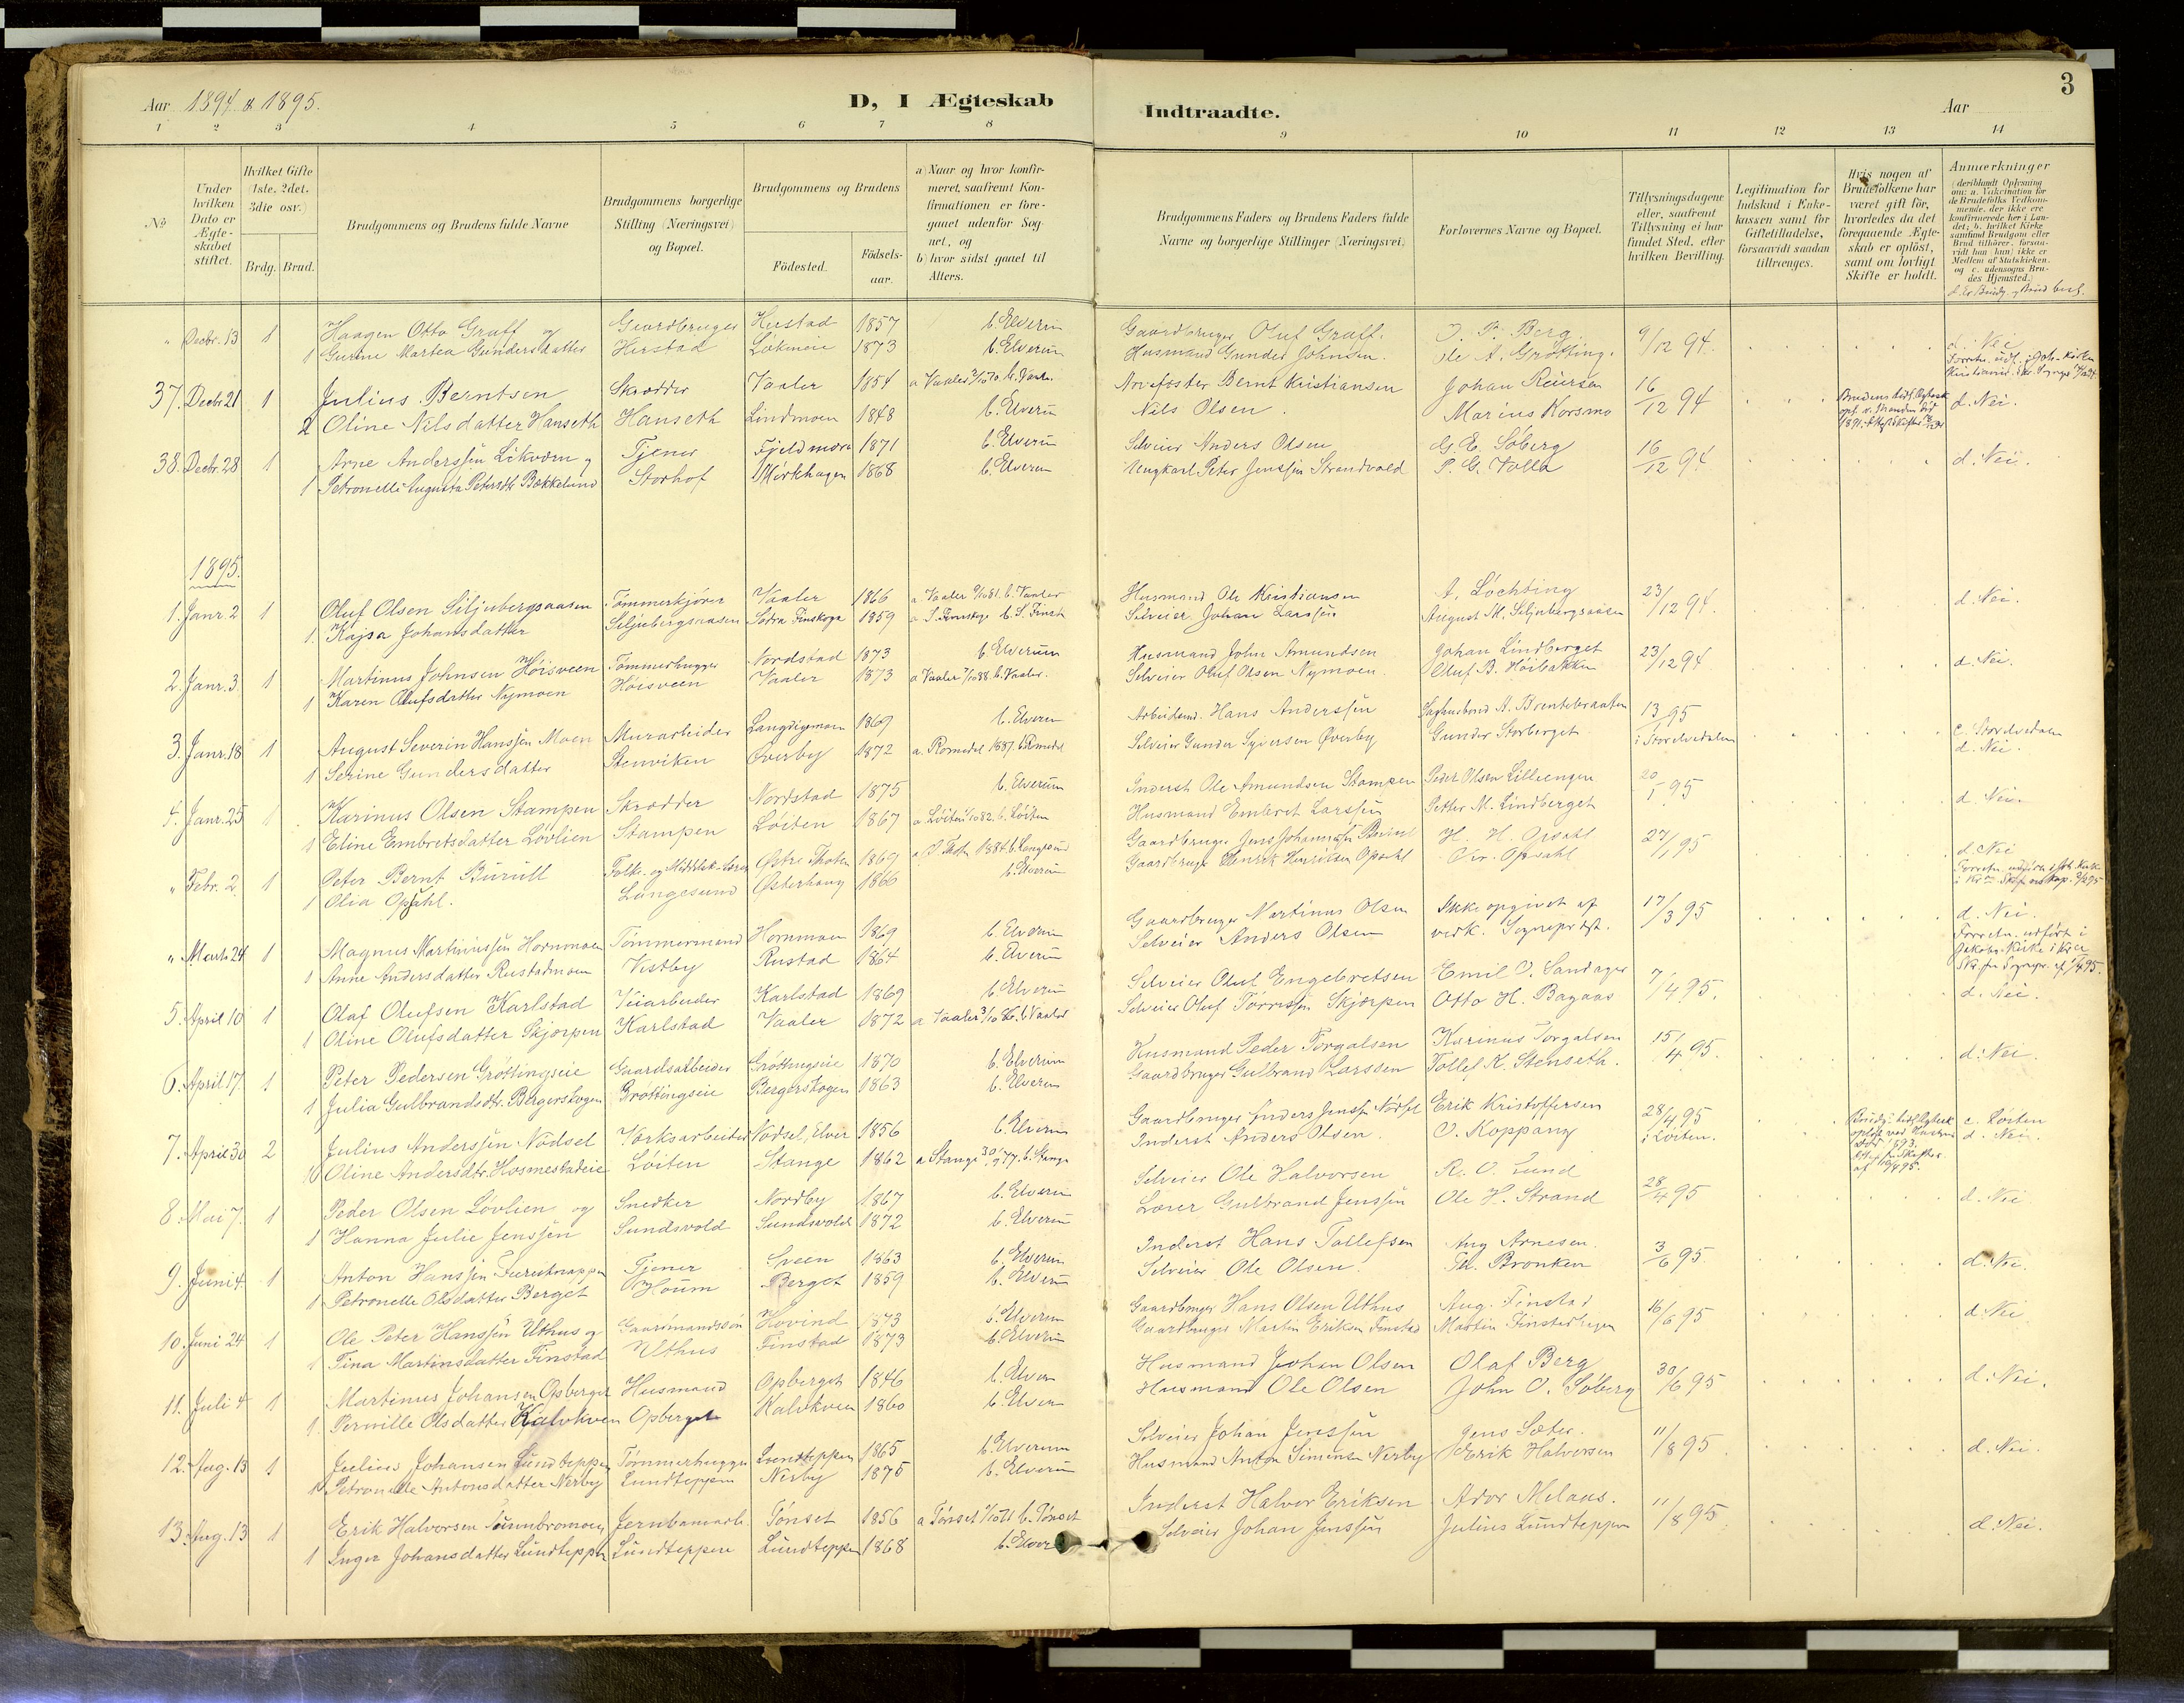 3
Aar 1894 & 1895.
D, I Ægteskab Indtraadte.
Aar
1 2 3 4 5 6 7 8 9 10 11 12 13 14
No.
Under hvilken Dato er Ægte-skabet stiftet.
Hvilket Gifte (1ste, 2det, 3die osv.)
Brdg. Brud.
Brudgommens og Brudens fulde Navne
Brudgommens borgerlige Stilling (Næringsvei) og Bopæl.
Brudgommens og Brudens
Fødested. Fødsels-aar.
a) Naar og hvor konfir-meret, saafremt Kon-firmationen er fore-gaaet udenfor Sog-net, og
b) hvor sidst gaaet til Alters.
Brudgommens Faders og Brudens Faders fulde Navne og borgerlige Stillinger (Næringsvei)
Forlovernes Navne og Bopæl.
Tillysningsdagene eller, saafremt Tillysning ei har fundet Sted, efter hvilken Bevilling.
Legitimation for Indskud i Enke-kassen samt for Giftetilladelse, forsaavidt saadan tiltrænges.
Hvis nogen af Brudefolkene har været gift før, hvorledes da det foregaaende Ægte-skab er opløst, samt om lovligt Skifte er holdt.
Anmærkninger (deriblandt Oplysning om: a. Vakcination for de Brudefolks Vedkom-mende, der ikke ere konfirmerede her i Lan-det; b. hvilket Kirke samfund Brudgom eller Brud tilhører, forsaa-vidt han (hun) ikke er Medlem af Statskirken, og c. udensogns Bru-des Hjemsted.)
d. Er Brudg. og Brud besl.
" Decbr. 13 1 Haagen Otto Graff og Gaardbruger Herstad 1857 b. Elverum Gaardbruger Oluf Graff. O. P. Berg 9/12 94. d. Nei
1 Gurine Martea Gundersdatter Herstad Lokneie 1873 b. Elverum Husmand Gunder Johnsen. Ole A. Grøtting.
37. Decbr 21 1 Julius Berntsen Skrædder Vaaler 1854 a Vaaler b. Vaaler Bernt Kristiansen Johan Reiersen 16/12 94 d. Nei.
2 Oline Nilsdatter Hanseth Hanseth Lindmoen 1848 b. Elverum Nils Olsen. Marius Korsmo
38. Decbr. 28 1 Arne Anderssen Likværn og Tjener Fjeldmora 1871 b. Elverum Selveier Anders Olsen G. E. Søberg 16/12 94 d. Nei.
1 Petronelle Augusta Petersdtr Bækkelund Storhof Mørkhagen 1868 b. Elverum Ungkarl Peter Jenssen Strandvold P. G. Volla
1895.
1. Janr. 2 1 Oluf Olsen Siljubergsaasen Tømmerkjører Vaaler 1866 a Vaaler b. Vaaler Husmand Ole Kristiansen A. Løchting 23/12 94. d. Nei.
1. Kajsa Johansdatter Siljubergsaasen Södra Finskoga 1859 a S. Finskoga b. S. Finsk Selveier Johan Larssen August M. Siljubergsaasen
2. Janr. 3. 1 Martinus Johnsen Høisveen Tømmerhugger Nordstad 1873 b. Elverum Husmand John Amundsen Johan Lindberget 23/12 94 d. Nei.
1 Karen Olufsdatter Nymoen Høisveen Vaaler 1873 a Vaaler b. Vaaler. Selveier Oluf Olsen Nymoen. Oluf B. Høibakken
3. Janr. 18 1 August Severin Hanssen Moen Murarbeider Langdigsmoen 1869 b. Elverum Arbeidsmd. Hans Anderssen A. Brentebraaten 13/1 95 c. Stordvedalen
1 Serine Gundersdatter Stenviken Øverby 1872 a. Romedal 1887. b. Romedal Selveier Gunder Syversen Øverby Gunder Storberget i Stordvedalen d. Nei.
4. Janr. 25 1 Karinus Olsen Stampen Skrædder Nordstad 1875 b. Elverum Inderst Ole Amundsen Stampen Peder Olsen Lilleengen 20/1 95 d. Nei.
1 Eline Embretsdatter Løvlien Stampen Løiten 1867 a. Løiten b. Løiten Husmand Embret Larssen Petter M. Lindberget
" Febr. 2 1 Peter Bernt Burull Østre Thoten 1869 b. Langesund Gaardbruger Jens Johannessen Burull H. H. Opsahl 27/1 95 d. Nei
1 Olia Opsahl. Langesund Østerhaug 1866 b. Elverum Gaardbruger Henrik Henriksen Opsahl Chr. Opsahl
" Marts 24 1 Magnus Martiniussen Hornmoen Tømmermand Hornmoen 1869 b. Elverum Gaardbruger Martinus Olsen Ikke opgivet af 17/3 95 d. Nei.
1 Anne Andersdatter Rustadmoen Vestby Rustad 1864 b. Elverum Selveier Anders Olsen vedk. Sogneprest.
5. April 10 1 Olaf Olufsen Karlstad Veiarbeider Karlstad 1869 b. Elverum Selveier Oluf Engebretsen Emil O. Sandager 7/4 95. d. Nei.
1 Oline Olufsdatter Skjærpen Karlstad Vaaler 1872 a Vaaler 3/10 86. b. Vaaler Selveier Oluf Torrissen Skjærpen Otto H. Bagaas
6. April 17. 1 Peter Pedersen Grøttingseie Gaardsarbeider Grøttingseie 1870 b. Elverum Husmand Peder Torgalsen Karinus Torgalsen 15/4 95. d. Nei.
1 Julia Gulbrandsdtr. Bergerskogen Grøttingseie Bergerskogen 1863 b. Elverum Gaardbruger Gulbrand Larssen Tollef K. Stenseth.
7. April 30 2 Julius Anderssen Nødsel Værksarbeider Nødsel, Elver 1856 b. Elverum Gaardbruger Anders Jenssen Nødsel Erik Kristoffersen 28/4 95 c. Løiten
Oline Andersdtr. Hosmestadeie Løiten Stange 1862 a Stange b. Stange Inderst Anders Olsen. O. Koppang i Løiten. d. Nei.
8. Mai 7. 1 Peder Olsen Løvlien og Snedker Nordby 1867 b. Elverum Selveier Ole Halvorsen R. O. Lund 28/4 95 d. Nei
1 Hanna Julie Jenssen Sundsvold Sundsvold 1872 b. Elverum Lærer Gulbrand Jenssen Ole H. Strand
9. Juni 4. 1 Anton Hanssen Furuknappen Tjener Sveen 1863 b. Elverum Inderst Hans Tollefsen Aug Arnesen. 3/6 95. d. Nei.
1 Petronelle Olsdatter Berget Houm Berget 1859 b. Elverum Selveier Ole Olsen. Bronken
10. Juni 24 1 Ole Peter Hanssen Uthus og Gaardmandssøn Hovind 1873 b. Elverum Gaardbruger Hans Olsen Uthus Aug. Finstad 16/6 95 d. Nei
1 Tina Martinsdatter Finstad Uthus Finstad 1873 b. Elverum Gaardbruger Martin Eriksen Finstad Martin Finstadhagen
11. Juli 4 1 Martinus Johansen Opberget Husmand Opberget 1846 b. Elverum Husmand Johan Olsen Olaf Berg 30/6 95 d. Nei.
1. Pernille Olsdatter Kalvkven Opberget Kalvkven 1860 b. Elverum Husmand Ole Olsen John O. Søberg
12. Aug. 13 1 Julius Johansen Lundteppen Tømmerhugger Lundteppen 1865 b. Elverum Selveier Johan Jenssen Jens Sæter. 11/8 95 d. Nei.
1 Petronelle Antonsdatter Nerby Lundteppen Nerby 1875 b. Elverum Husmand Anton Simensen Nerby Erik Halvorsen
13. Aug. 13 1 Erik Halvorsen Tønset 1856 a Tønset b. Tønset Inderst Halvor Eriksen Ador Melaas. 11/8 95 d. Nei.
1 Inger Johansdatter Lundteppen Lundteppen Lundteppen 1868 b. Elver Selveier Johan Jenssen Julius Lundteppen